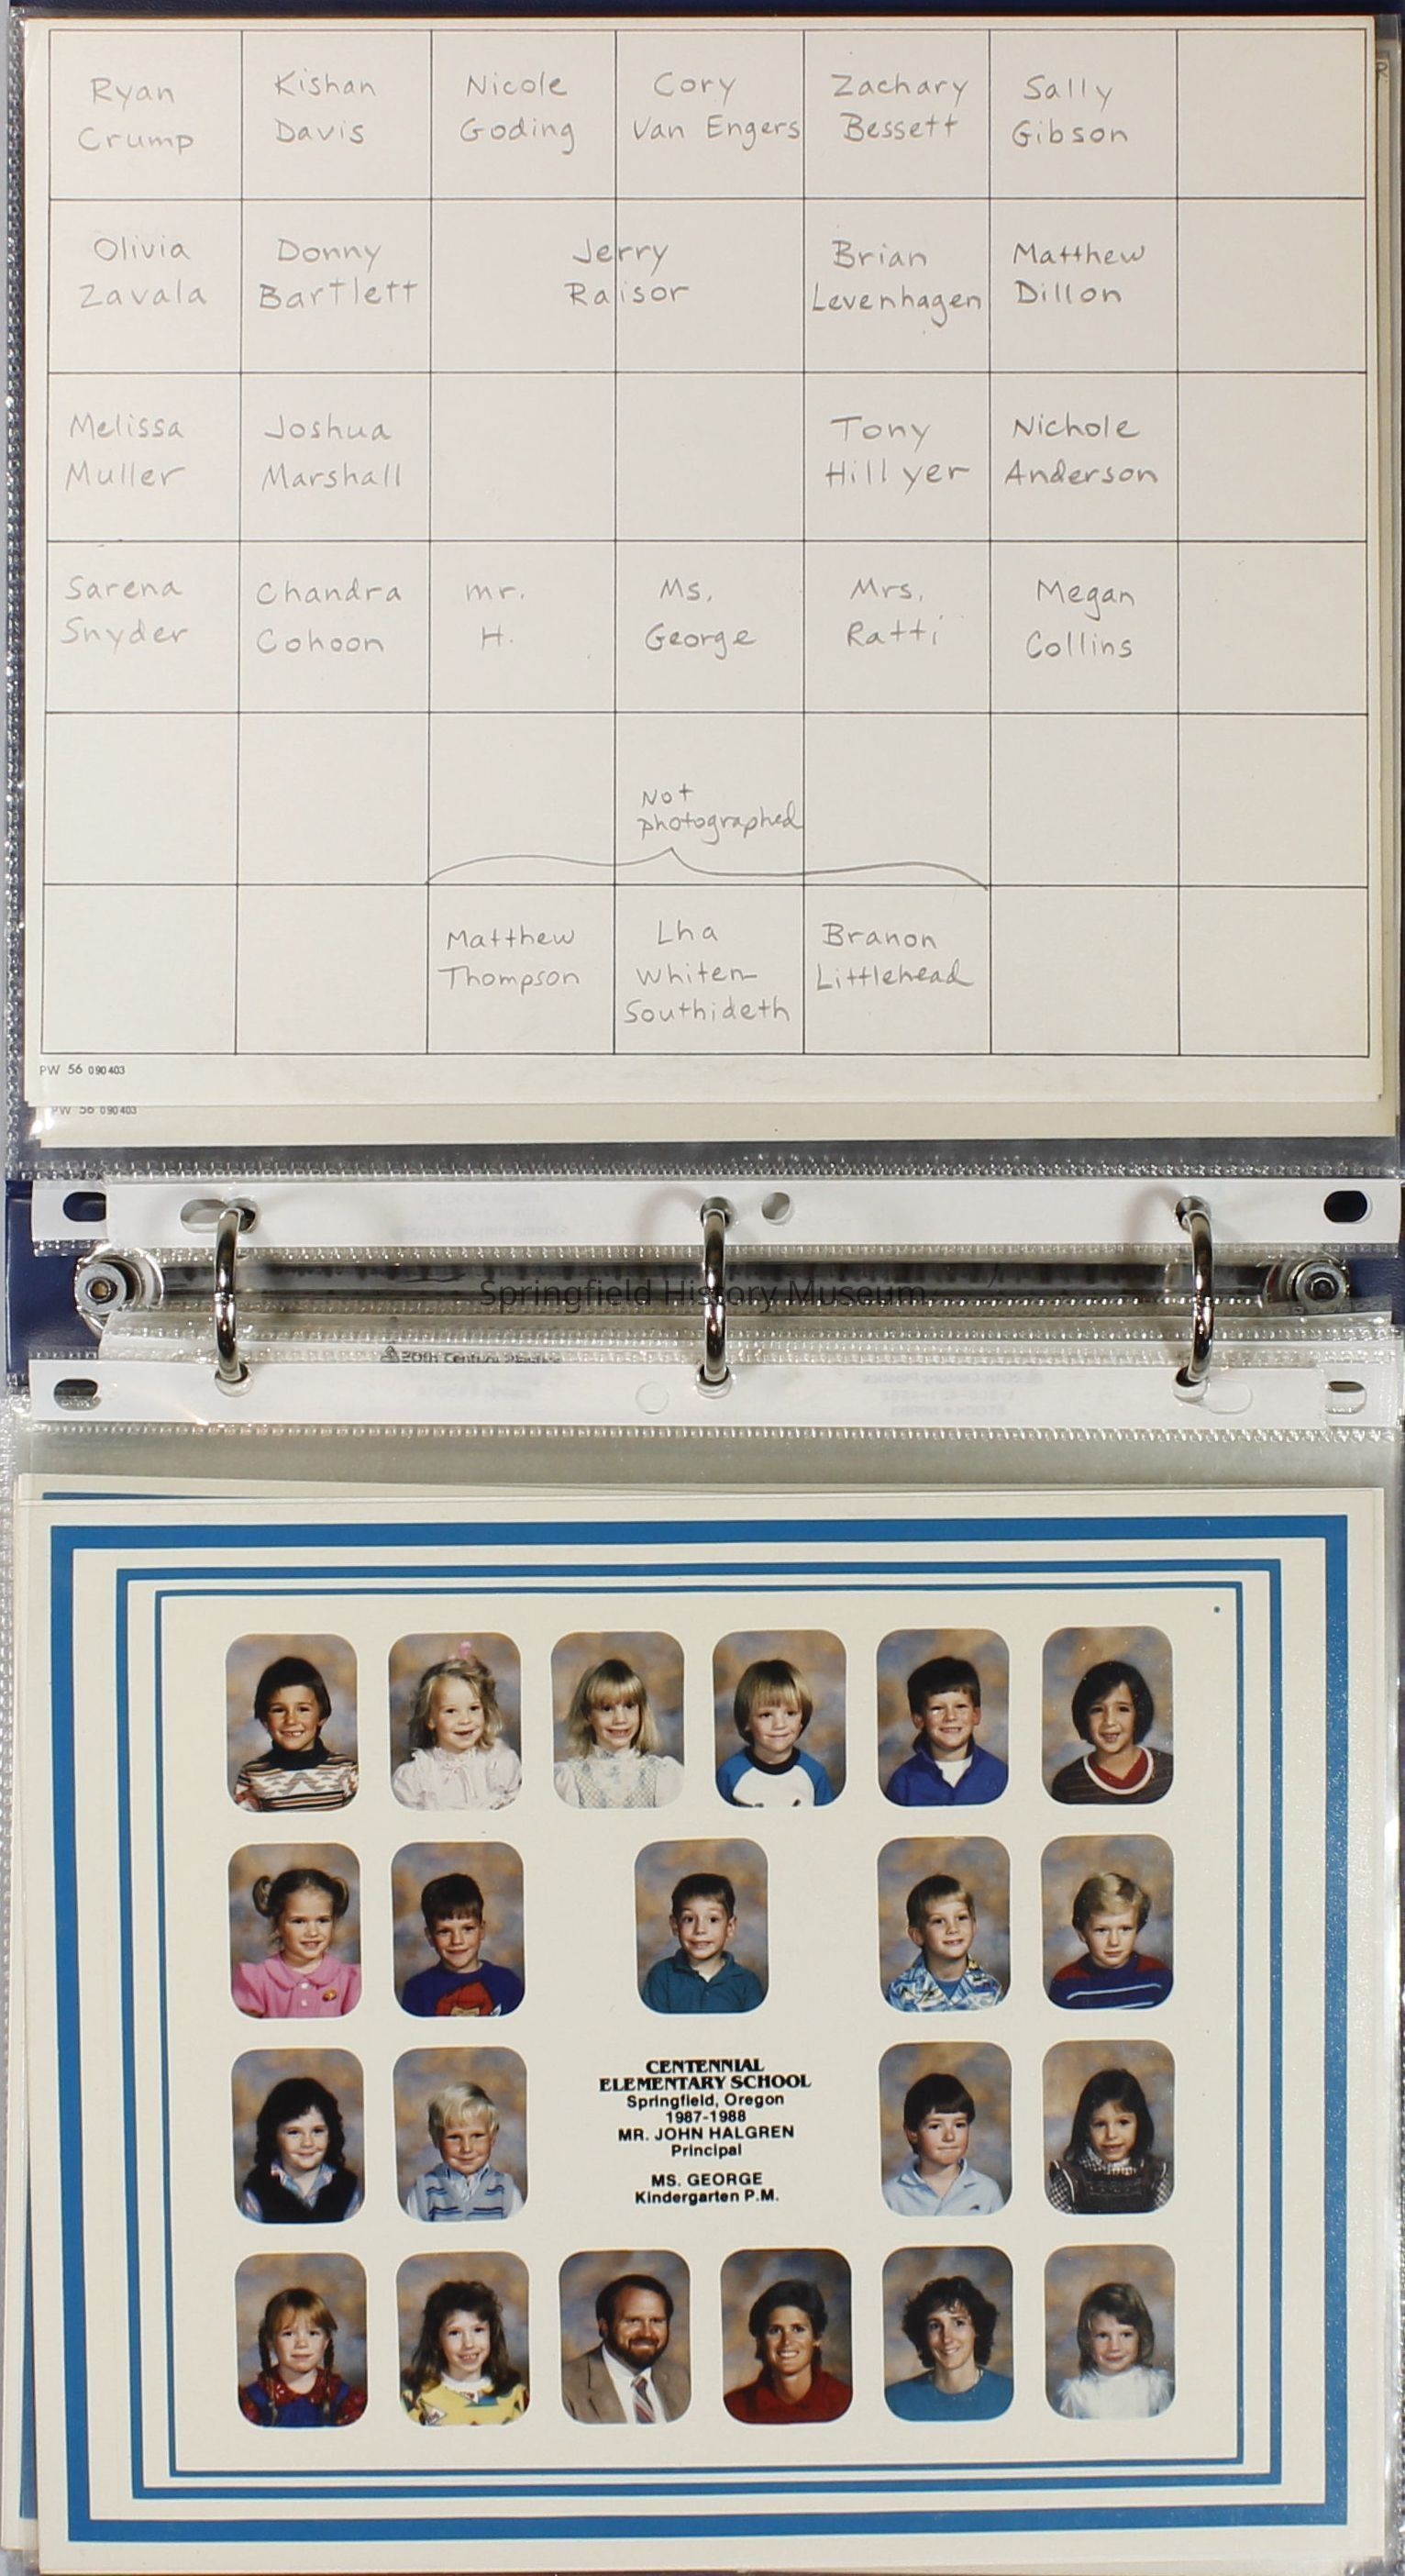 Ryan Crump
Kishan Davis
Nicole Goding
Cory Van Engers
Zachary Bessett
Sally Gibson
Olivia Zavala
Donny Bartlett
Jerry Raisor
Brian Levenhagen
Matthew Dillon
Melissa Muller
Joshua Marshall
Tony Hillyer
Nichole Anderson
Sarena Snyder
Chandra Cohoon
mr. H.
Ms. George
Mrs. Ratti
Megan Collins
Not
photographed
Matthew Thompson
Lha Whiten-Southideth
Branon Littlehead
PW 56 090403
PW 56 090403
Springfield History Museum
20th Century Plastics
CENTENNIAL
ELEMENTARY SCHOOL
Springfield, Oregon
1987-1988
MR. JOHN HALGREN
Principal
MS. GEORGE
Kindergarten P.M.